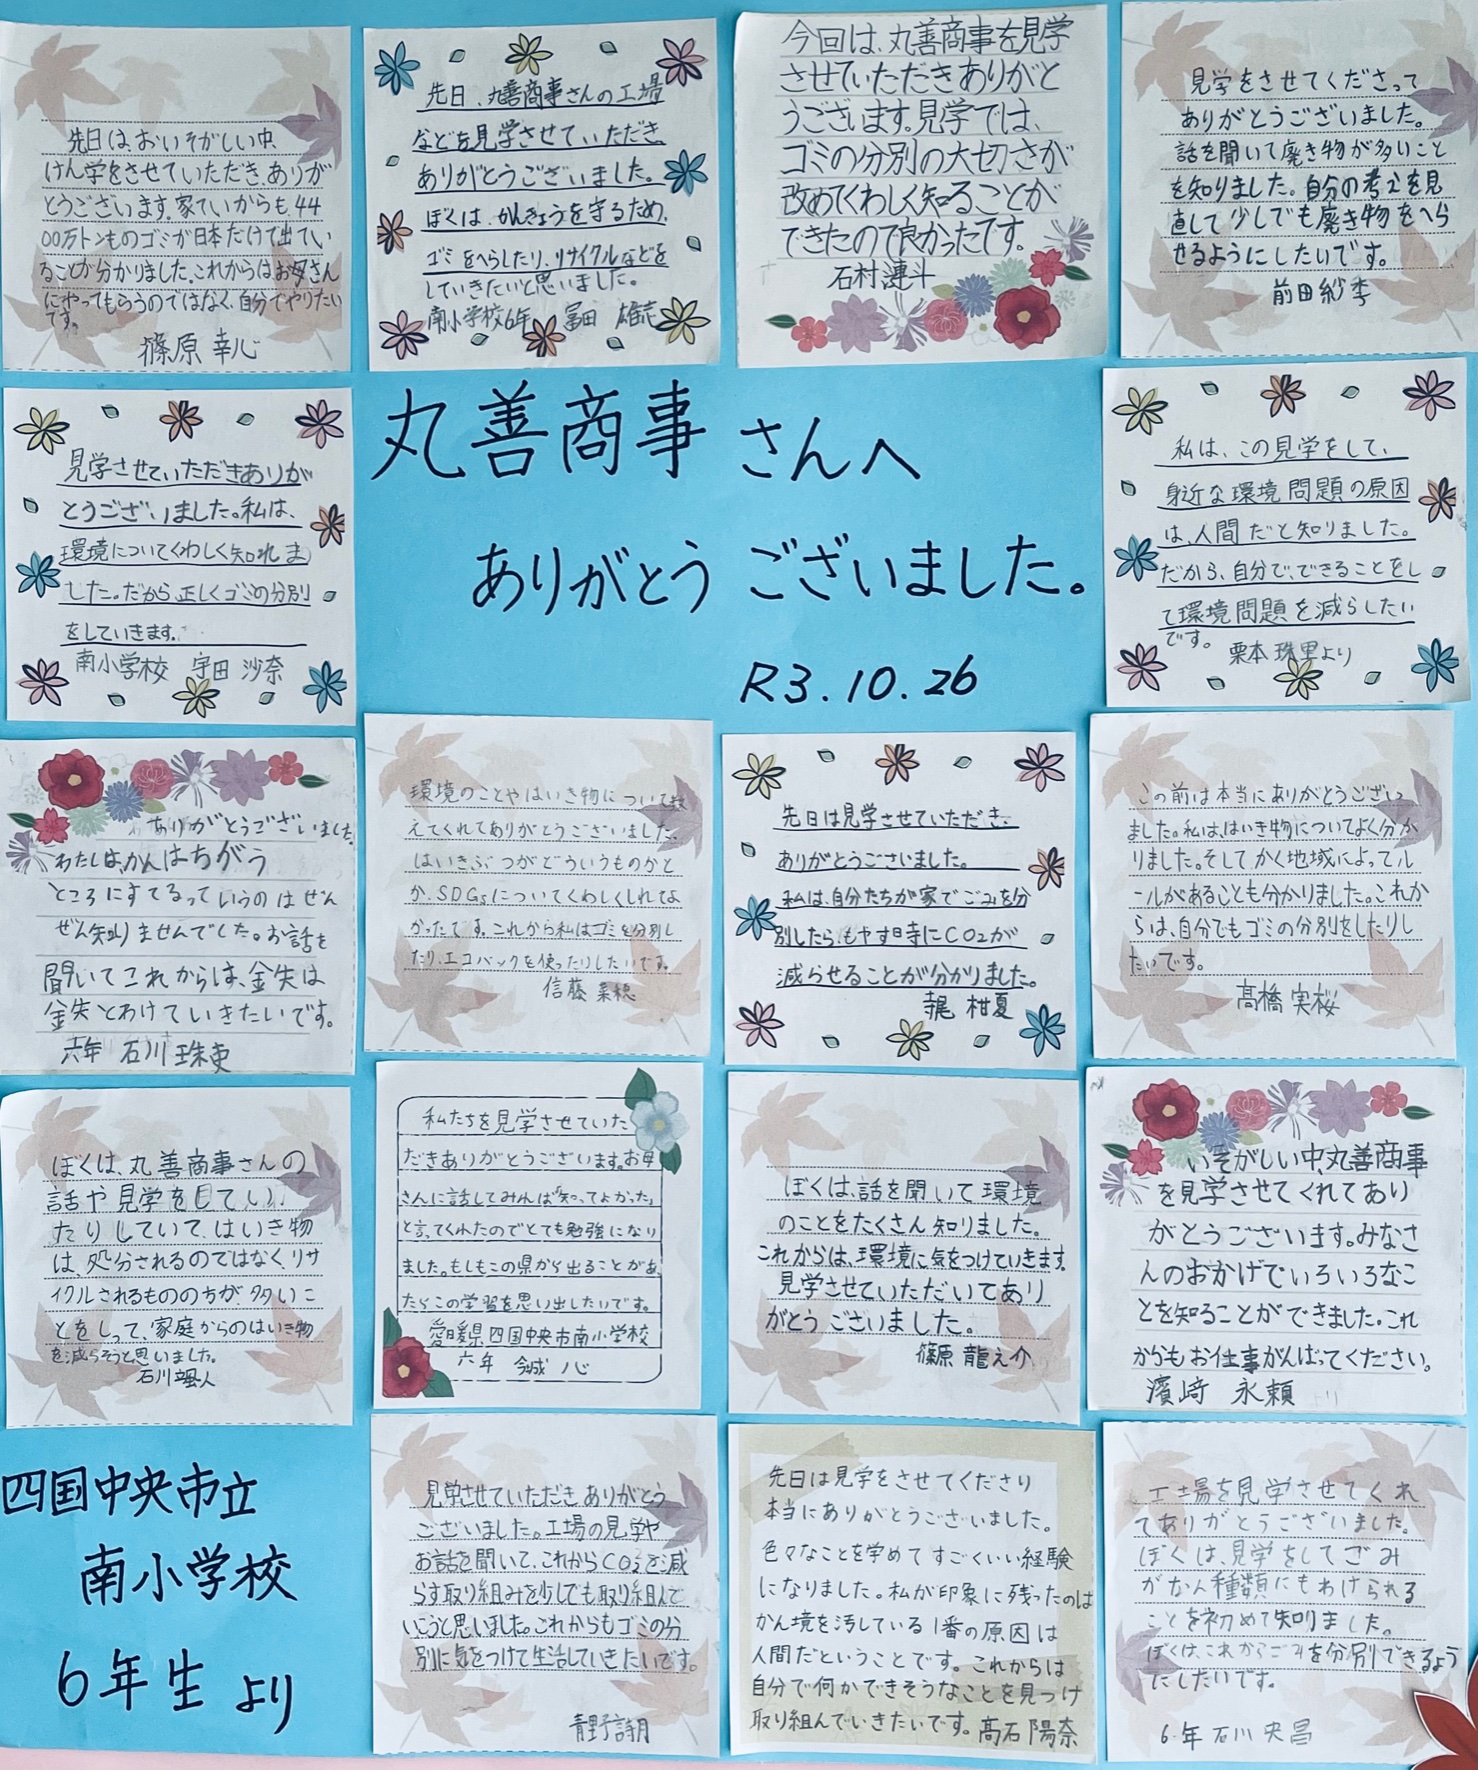 先日は、おいそがしい中、
けん学をさせていただき、ありが
とうございます。家ていからも、44
00万トンものゴミが日本だけで出てい
ることが分かりました。これからは、お母さん
にやってもらうのではなく、自分でやりたい
です。
篠原 幸心
先日、丸善商事さんの工場
などを見学させていただき、
ありがとうございました。
ぼくは、かんきょうを守るため、
ゴミをへらしたり、リサイクルなどを
していきたいと思いました。
南小学校6年 冨田 雄志
今回は、丸善商事を見学
させていただきありがと
うございます。見学では、
ゴミの分別の大切さが
改めてくわしく知ることが
できたので良かったです。
石村 漣斗
見学をさせてくださって
ありがとうございました。
話を聞いて廃き物が多いこと
を知りました。自分の考えを見
直して少しでも廃き物をへら
せるようにしたいです。
前田 紗季
見学させていただきありが
とうございました。私は、
環境についてくわしく知れま
した。だから正しくゴミの分別
をしていきます。
南小学校 宇田 沙奈
丸善商事さんへ
ありがとうございました。
R3.10.26
私は、この見学をして、
身近な環境問題の原因
は、人間だと知りました。
だから、自分で、できることをし
て環境問題を減らしたい
です。
栗本 珠里より
ありがとうございました
わたしは、かんはちがう
ところにすてるっていうのはぜん
ぜん知りませんでした。お話を
聞いてこれからは、金失は
金失とわけていきたいです。
六年 石川 珠吏
環境のことやはいき物について教
えてくれてありがとうございました。
はいきぶつがどういうものかと
か、SDGsについてくわしくしれてよ
かったです。これから私はゴミを分別し
たり、エコバックを使ったりしたいです。
信藤 菜穂
先日は見学させていただき、
ありがとうございました。
私は、自分たちが家でごみを分
別したら、もやす時にCO2が
減らせることが分かりました。
尾 柑夏
この前は本当にありがとうござい
ました。私は、はいき物についてよく分か
りました。そしてかく地域によってル
ールがあることも分かりました。これか
らは、自分でもゴミの分別をしたりし
たいです。
髙橋 実桜
ぼくは、丸善商事さんの
話や見学をしてい
たりしていて、はいき物
は、処分されるのではなく、リサ
イクルされるものの方が多いこ
とをしって、家庭からのはいき物
を減らそうと思いました。
石川 颯人
私たちを見学させていた
だきありがとうございます。お母
さんに話してみれば「知ってよかった」
と言ってくれたのでとても勉強になり
ました。もしもこの県から出ることがあ
たらこの学習を思い出したいです。
愛媛県四国中央市南小学校
六年 心
ぼくは、話を聞いて環境
のことをたくさん知りました。
これからは、環境に気をつけていきます。
見学させていただいてあり
がとうございました。
篠原 龍之介
いそがしい中、丸善商事
を見学させてくれてあり
がとうございます。みなさ
んのおかげでいろいろなこ
とを知ることができました。これ
からもお仕事がんばってください。
濱﨑 永頼
四国中央市立
南小学校
6年生より
見学させていただきありがとう
ございました。工場の見学や
お話を聞いて、これからCO2を減
らす取り組みを少しでも取り組んで
いこうと思いました。これからもゴミの分
別に気をつけて生活していきたいです。
青野 詩月
先日は見学をさせてくださり
本当にありがとうございました。
色々なことを学めてすごくいい経験
になりました。私が印象に残ったのは
かん境を汚している1番の原因は
人間だということです。これからは
自分で何かできそうなことを見つけ
取り組んでいきたいです。髙石 陽奈
工場を見学させてくれ
てありがとうございました。
ぼくは、見学をしてごみ
がなん種類にもわけられる
ことを初めて知りました。
ぼくは、これからごみを分別できるよう
にしたいです。
6年 石川 央昌